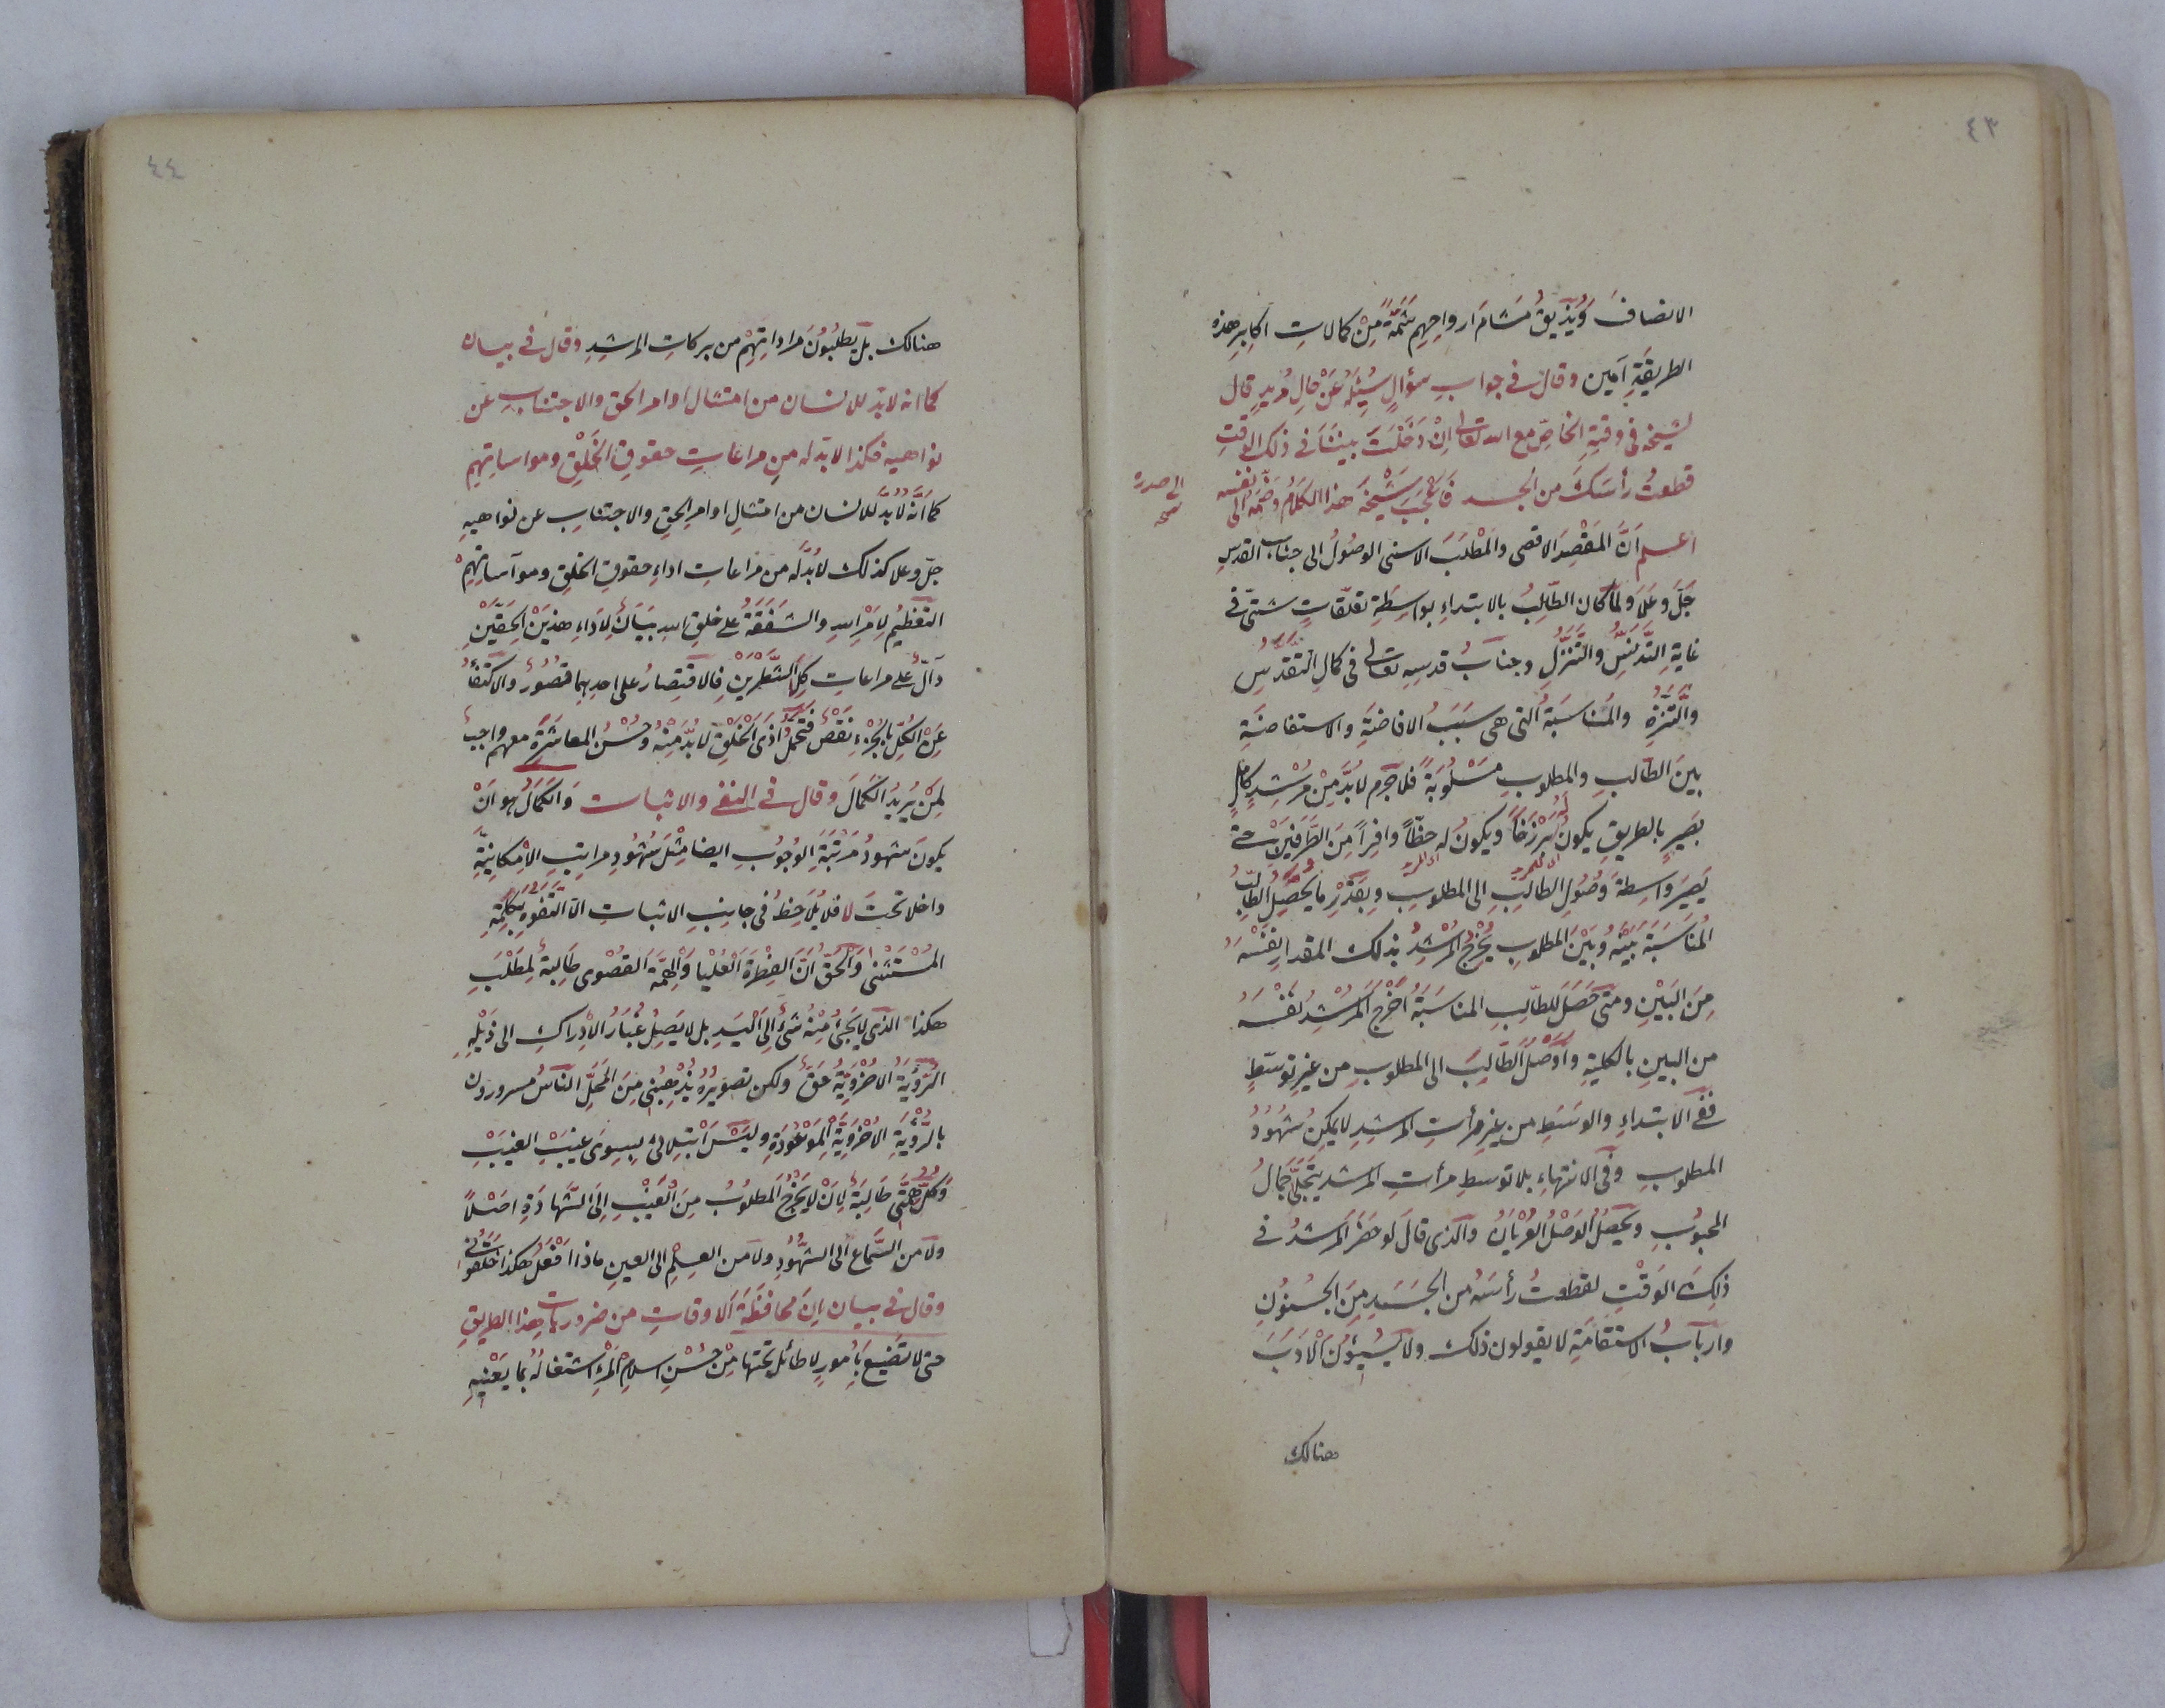 ٤٣
الانصاف وَيُذِيقُ مَشَامَ ارواحِهِم شَمَّةً مِنْ كمالاتِ اكابِرِ هذه
الطريقَةِ آمين وقال في جواب سؤالٍ سُئِلَهُ عَنْ حالِ مُريدٍ قال
لشيخه في وقتِهِ الخاصّ مع الله تعالى اِنْ دَخَلْتَ بينَنَا في ذلك الوقتِ
قطعتُ رأسَكَ من الجسد فَاَعْجَبَ شَيْخَهُ هذا الكلامُ وضَمَّهُ الى نفسه
الى صدره
نسخه
اعلم اَنَّ المَقْصِدَ الاقصى والمَطْلَبَ الاسنى الوصُولُ الى جناب القدسِ
جَلَّ وَعَلَا وَلَمَّا كان الطَّالِبُ بالابتداءِ بواسِطَةِ تعلّقاتٍ شتىّ في
غايةِ التَّدَنُّسِ والتَّنَزُّلِ وجنابُ قدسِهِ تعالى في كمالِ التَّقَدُّسِ
والتَّنَزُّهِ والمُنَاسَبَةُ الّتي هي سَبَبُ الافاضَةِ والاستفاضَةِ
بينَ الطّالبِ والمطلوبِ مَسْلُوبَةً فلا جَرَم لابُدَّ مِنْ مُرْشِدٍ كامِلٍ
بَصِيرٍ بالطريقِ يكونُ لَهُ بَرْزَخًا ويكونُ له حظّاً وافِراً مِنَ الطَّرَفَيْنِ حتى
يَصِيرَ واسِطَةَ وُصُولِ الطالِبِ الى المطلوبِ وبِقَدْرِ ما يَحْصُلُ لِلطّالِبِ
المُنَاسَبَةَ بَيْنَهُ وبَيْنَ المطلوبِ يُخْرِجُ المُرْشِدُ بذلك المقدارِ نَفْسَهُ
مِنَ البَيْنِ ومَتَى حَصَلَ للطّالِبِ المناسَبَةُ اَخْرَجَ المُرْشِدُ نَفْسَهُ
من البينِ بالكلّيةِ واَوْصَلَ الطّالِبَ الى المطلوبِ من غيرِ توسّطٍ
ففي الابتداءِ والوسَطِ من غيرِ مِرأتِ المرشِدِ لا يمكِنُ شُهُودُ
المطلوبِ وفي الانتهاءِ بلا توسطِ مرأتِ المرشد يَتَجَلَّى جَمَالُ
المحبُوبِ ويَحْصُلُ الوَصْلُ العُرْيَانُ والّذي قالَ لو حَضَرَ المُرشدُ في
ذلِكَ الوَقْتِ لقطعتُ رأسَهُ من الجَسَدِ مِنَ الجُنُونِ
وارباَبُ الاسْتِقَامَةِ لا يقولون ذلك ولا يُسيئونَ الْاَدَبَ
هنالك
٤٤
هنالك بل يطلبُونَ مراداتِهِمْ من بركاتِ المرشِدِ وقال في بيان
كما انه لابدّ للانسان من امتثال اوامر الحق والاجتناب عن
نواهيه فكذا لابدّ له من مراعاتِ حقوقِ الخَلْقِ ومواساتِهِم
كَمَا اَنَّهُ لَابُدَّ للانسان من امتثالِ اوامرِ الحقِ والاجتنابِ عن نواهيهِ
جلّ وعلا كذلك لابُدَّ لَهُ من مراعاتِ اداءِ حقوقِ الخلقِ وموآساتِهِمْ
التعْظيمُ لِاَمْرِ اللهِ والشَفَقَةُ على خلقِ اللهِ بَيَانٌ لِاَداءِ هذَيْنِ الحَقَّيْنِ
وَدَالٌّ على مراعاتِ كِلَا الشَّطْرَيْنِ فالاقتِصارُ على احدِهِما قصُورٌ والاكتفاُ
عَنِ الكُلِّ بالجُزْءِ نَقْصٌ فَتَحَمُّلُ اَذَى الخَلْقِ لابُدَّ مِنْهُ وحُسْنُ المعاشَرَةِ معهم واجبٌ
لِمَنْ يُرِيدُ الكمالَ وقال في النفي والاثبات وَالكَمَالُ هو اَنْ
يكونَ شهودُ مَرْتَبَةِ الوُجُوبِ ايضا مِثْلَ شُهُودِ مراتِبِ الْاِمْكانِيّةِ
داخلا تحتَ لا فلا يُلَاحَظُ في جانِبِ الاثباتِ الّا التفوّهُ بِكَلِمَةِ
المُسْتَثْنَى وَالحَقُّ اَنَّ الفِطْرَةَ العُلْيا وَالهِمَّةَ القصْوى طَالِبَةٌ لِمَطْلَبٍ
هكذا الذي لا يَجِئُ مِنْهُ شَئٌ اِلَى الْيَدِ بل لا يَصِلُ غُبَارُ الْاِدراكِ الى ذَيْلِهِ
الرُّؤيَةُ الاُخْرَوِيَّةُ حَقٌّ ولكن تصويرُهُ يُذْهِبُنِي مِنَ المَحَلِّ النّاسُ مسرورون
بالرُّؤْيَةِ الاُخْرَوِيَّةِ المَوْعُودَةِ وليسَ ابْتِلائي بِسِوَى غَيْبِ الغَيْبِ
وَكُلُّ هِمَّتِي طَالِبَةٌ لِاَنْ لَا يَخْرُجَ المَطلُوبُ مِنَ الغَيْبِ اِلَى الشَّهادَةِ اصْلًا
ولا من السَّماعِ الى الشُّهُودِ ولا من العِلْمِ الى العينِ ماذا اَفْعَلُ هكذا خَلَقُونِي
وقال في بيان اِنّ محافظَةَ الاوقاتِ من ضرورياتِ هذا الطريقِ
حتى لا تضيعَ باُمورٍ لا طائل تحتها مِنْ حُسْنِ اسلامِ المَرْءِ اشتغالُهُ بما يَعْنِيهِ